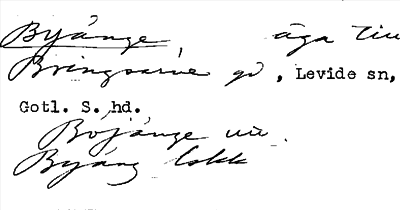 Byänge äga till
Bringsarve gd, Levide sn,
Gotl. S. hd.
Böjänge uu.
Byäng lokk